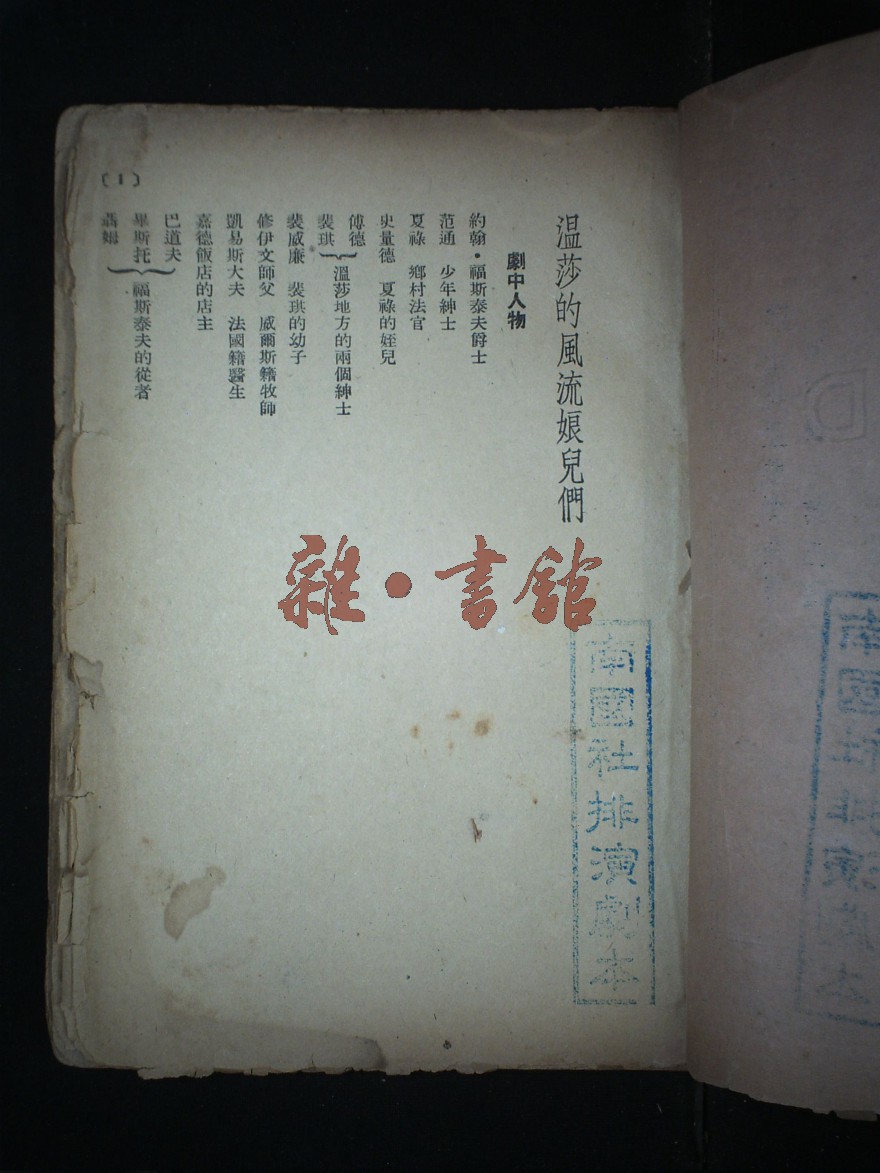 温莎的風流娘兒們
劇中人物
約翰·福斯泰夫爵士
范通 少年紳士
夏祿 鄉村法官
史量德 夏祿的姪兒
傅德
裴琪
溫莎地方的兩個紳士
裴威廉 裴琪的幼子
修伊文師父 威爾斯籍牧師
凱易斯大夫 法國籍醫生
嘉德飯店的店主
巴道夫
畢斯托
聶姆
福斯泰夫的從者
(1)
雜·書館
南國社排演劇本